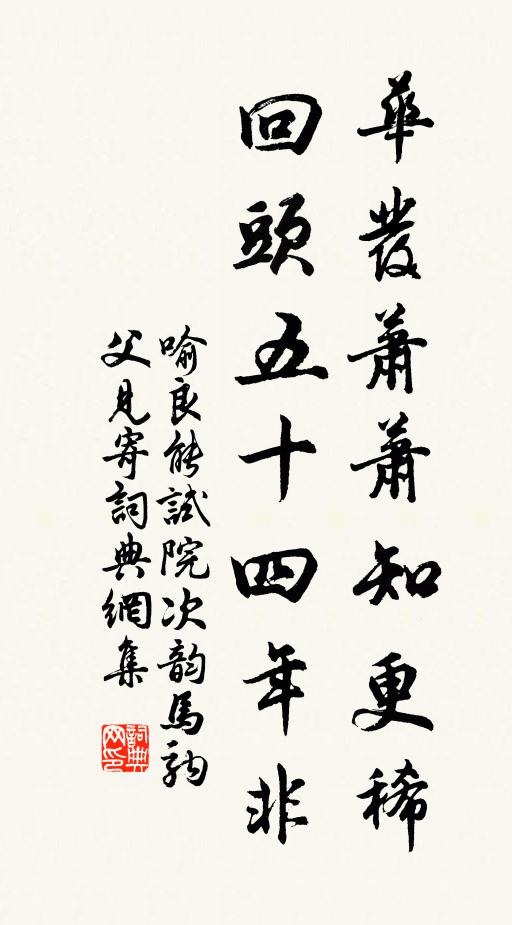 華發蕭蕭知更稀
回頭五十四年非
喻良能試院次韵馬駒
父見寄詞典網集
詞典网印